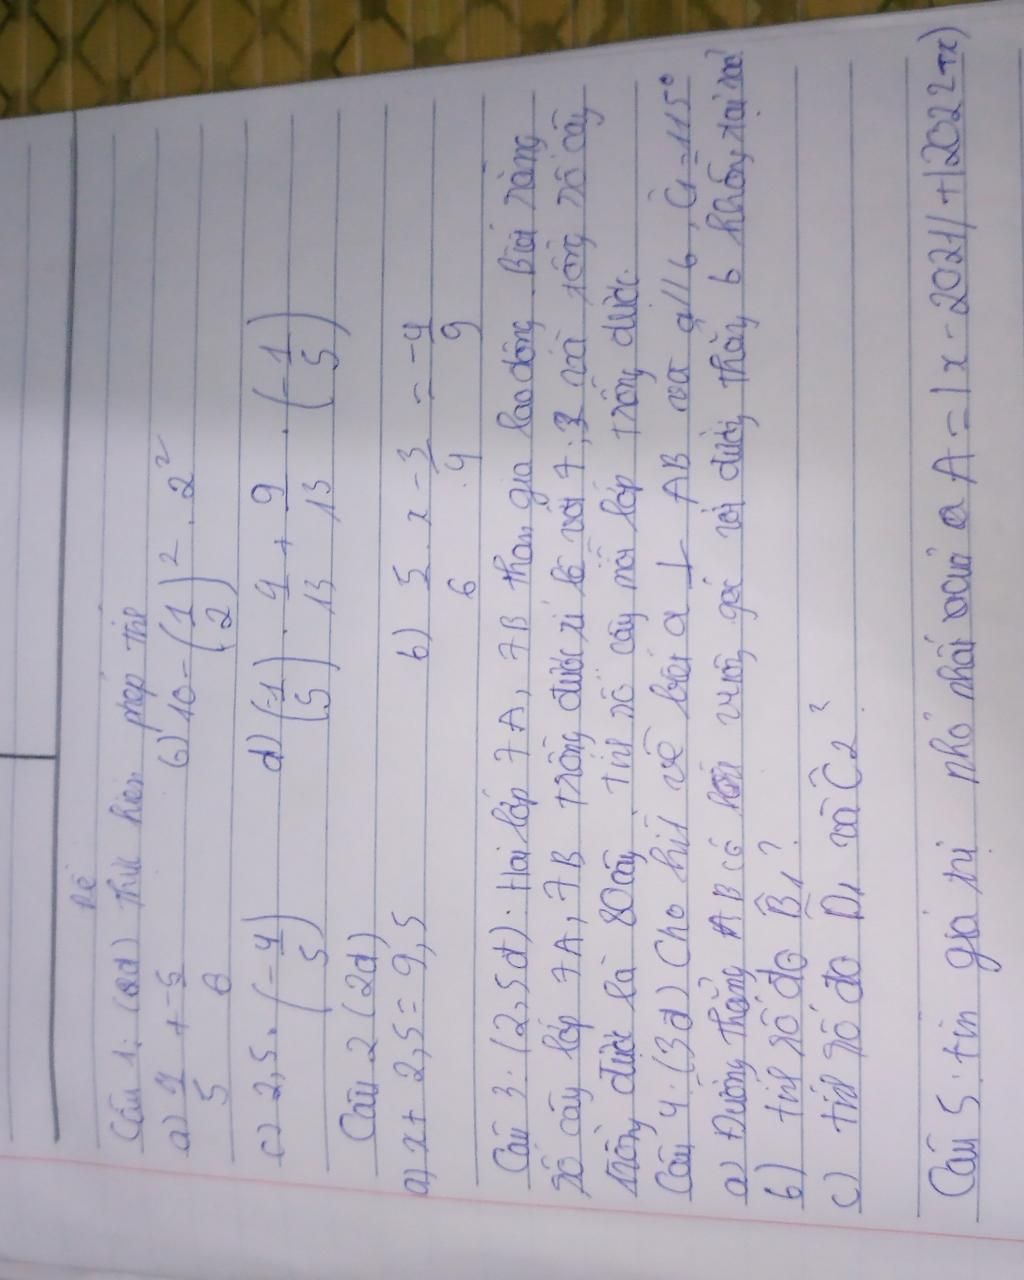 Đề
Câu 1: (2đ) Thực hiện phép tính
a) 4/5 + -5/8 b) 10 - (1/2)² . 2²
c) 2,5 . (-4/5) d) (-1/5) . 4/13 + 9/13 . (-1/5)
Câu 2 (2đ)
a) x + 2,5 = 9,5 b) 5/6 . x - 3/4 = -4/9
Câu 3: (2,5đ). Hai lớp 7A, 7B tham gia lao động. Biết rằng
số cây lớp 7A, 7B trồng được tỉ lệ với 7;3 và tổng số cây
trồng được là 80 cây. Tính số cây mỗi lớp trồng được.
Câu 4: (3đ) Cho hình vẽ biết a ⊥ AB và a//b, Ĉ1=115°
a) Đường thẳng AB có vuông góc với đường thẳng b không tại sao?
b) tính số đo B̂1?
c) tính số đo D̂1 và Ĉ2?
Câu 5: tìm giá trị nhỏ nhất của A = |x - 2021| + |2022 - x|